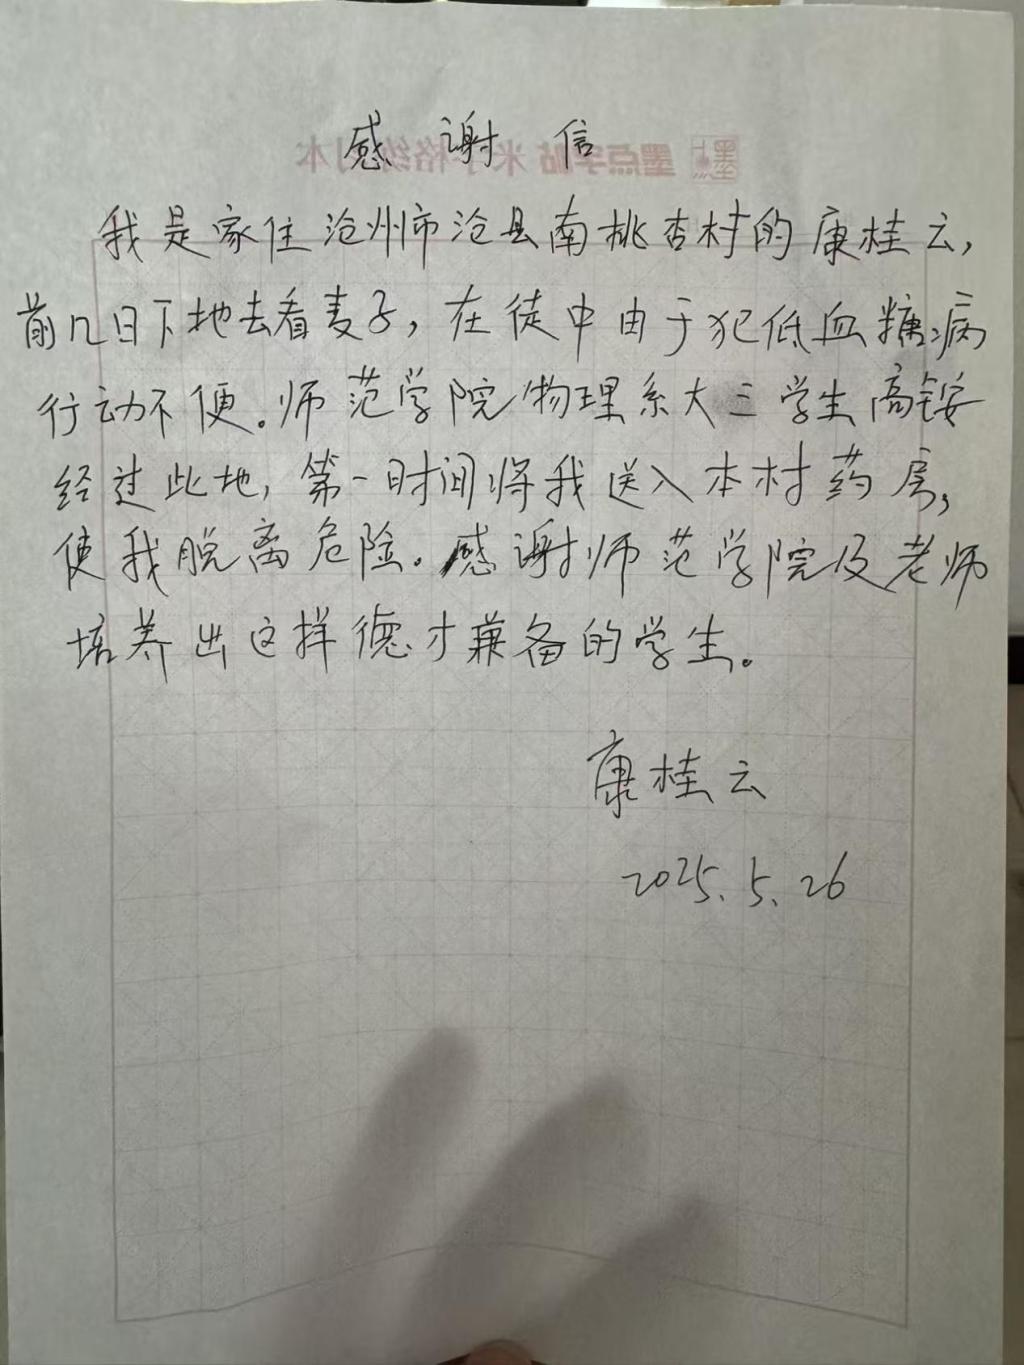 感谢信
墨点字帖 米字格练习本
我是家住沧州市沧县南桃杏村的康桂云,
前几日下地去看麦子,在徒中由于犯低血糖病
行动不便。师范学院物理系大三学生高铵
经过此地,第一时间将我送入本村药房,
使我脱离危险。感谢师范学院及老师
培养出这样德才兼备的学生。
康桂云
2025.5.26